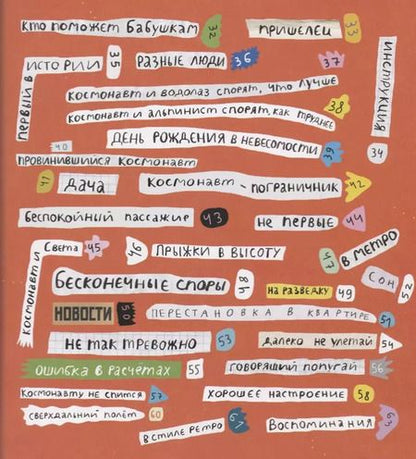 кто поможет бабушкам 32
пришелец 33
первый в истории 35
разные люди 36
37
инструкция 34
космонавт и водолаз спорят, что лучше
космонавт и альпинист спорят, как труднее 38
день рождения в невесомости 39
40
провинившийся космонавт
41 дача
космонавт - пограничник 42
беспокойный пассажир 43
не первые 44
космонавт и света 45
46 прыжки в высоту
47 в метро
бесконечные споры 48
на разведку 49
сон 52
новости 50
перестановка в квартире 51
не так тревожно 53
далеко не улетай 54
ошибка в расчетах 55
говорящий попугай 56
космонавту не спится 57
хорошее настроение 58
сверхдальний полёт 60
в стиле ретро 61
воспоминания 63